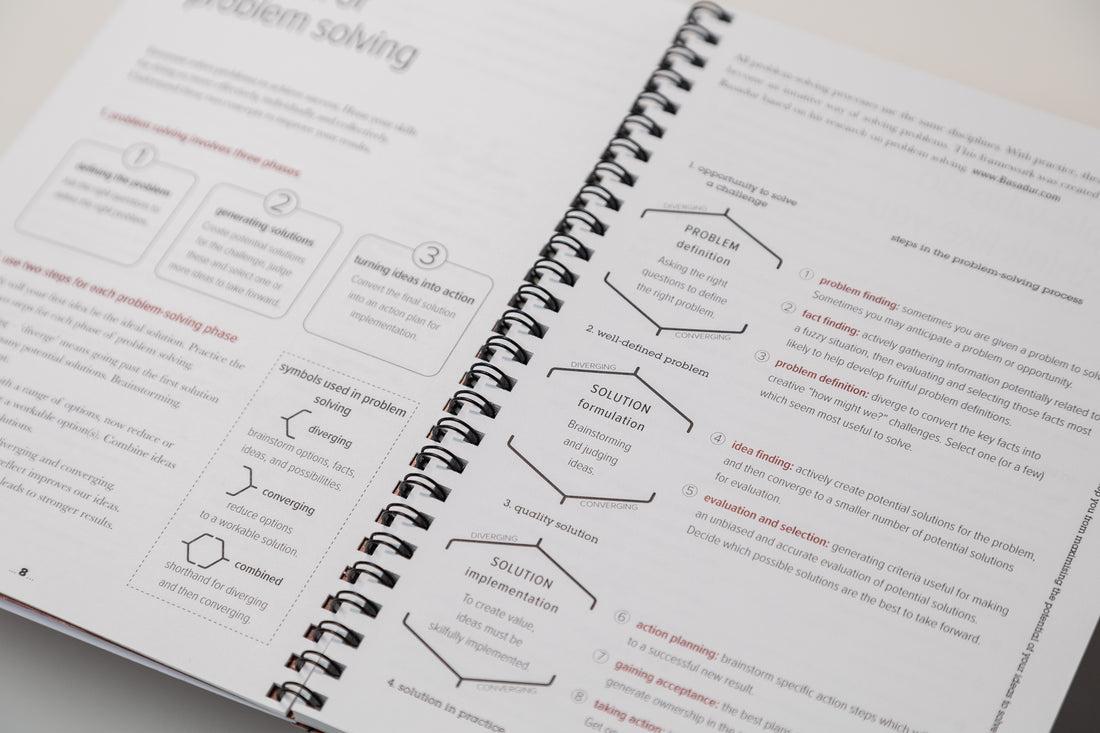 problem solving
1. problem solving involves three phases
1
defining the problem
2
generating solutions
Create potential solutions
for the challenge, judge
these and select one or
more ideas to take forward.
3
turning ideas into action
Convert the final solution
into an action plan for
implementation.
use two steps for each problem-solving phase
will your first idea be the ideal solution. Practice the
steps for each phase of problem solving.
'diverge' means going past the first solution
many potential solutions. Brainstorming.
with a range of options, now reduce or
a workable option(s). Combine ideas
diverging and converging.
reflect improves our ideas.
leads to stronger results.
symbols used in problem
solving
diverging
brainstorm options, facts,
ideas, and possibilities.
converging
reduce options
to a workable solution.
combined
shorthand for diverging
and then converging.
8
All problem solving processes use the same disciplines. With practice,
become an intuitive way of solving problems. This framework was created
Basadur based on his research on problem solving. www.Basadur.com
1. opportunity to solve
a challenge
DIVERGING
PROBLEM
definition
Asking the right
questions to define
the right problem.
CONVERGING
2. well-defined problem
DIVERGING
SOLUTION
formulation
Brainstorming
and judging
ideas.
CONVERGING
3. quality solution
DIVERGING
SOLUTION
implementation
To create value,
ideas must be
skilfully implemented.
CONVERGING
4. solution in practice
steps in the problem-solving process
1 problem finding: sometimes you are given a problem to
Sometimes you may anticipate a problem or opportunity.
2 fact finding: actively gathering information potentially related to
a fuzzy situation, then evaluating and selecting those facts most
likely to help develop fruitful problem definitions.
3 problem definition: diverge to convert the key facts into
creative "how might we?" challenges. Select one (or a few)
which seem most useful to solve.
4 idea finding: actively create potential solutions for the problem,
and then converge to a smaller number of potential solutions
for evaluation.
5 evaluation and selection: generating criteria useful for making
an unbiased and accurate evaluation of potential solutions.
Decide which possible solutions are the best to take forward.
6 action planning: brainstorm specific action steps which
to a successful new result.
7 gaining acceptance: the best plans
generate ownership in the
8 taking action:
Get
you from maximising the potential of your ideas to solve